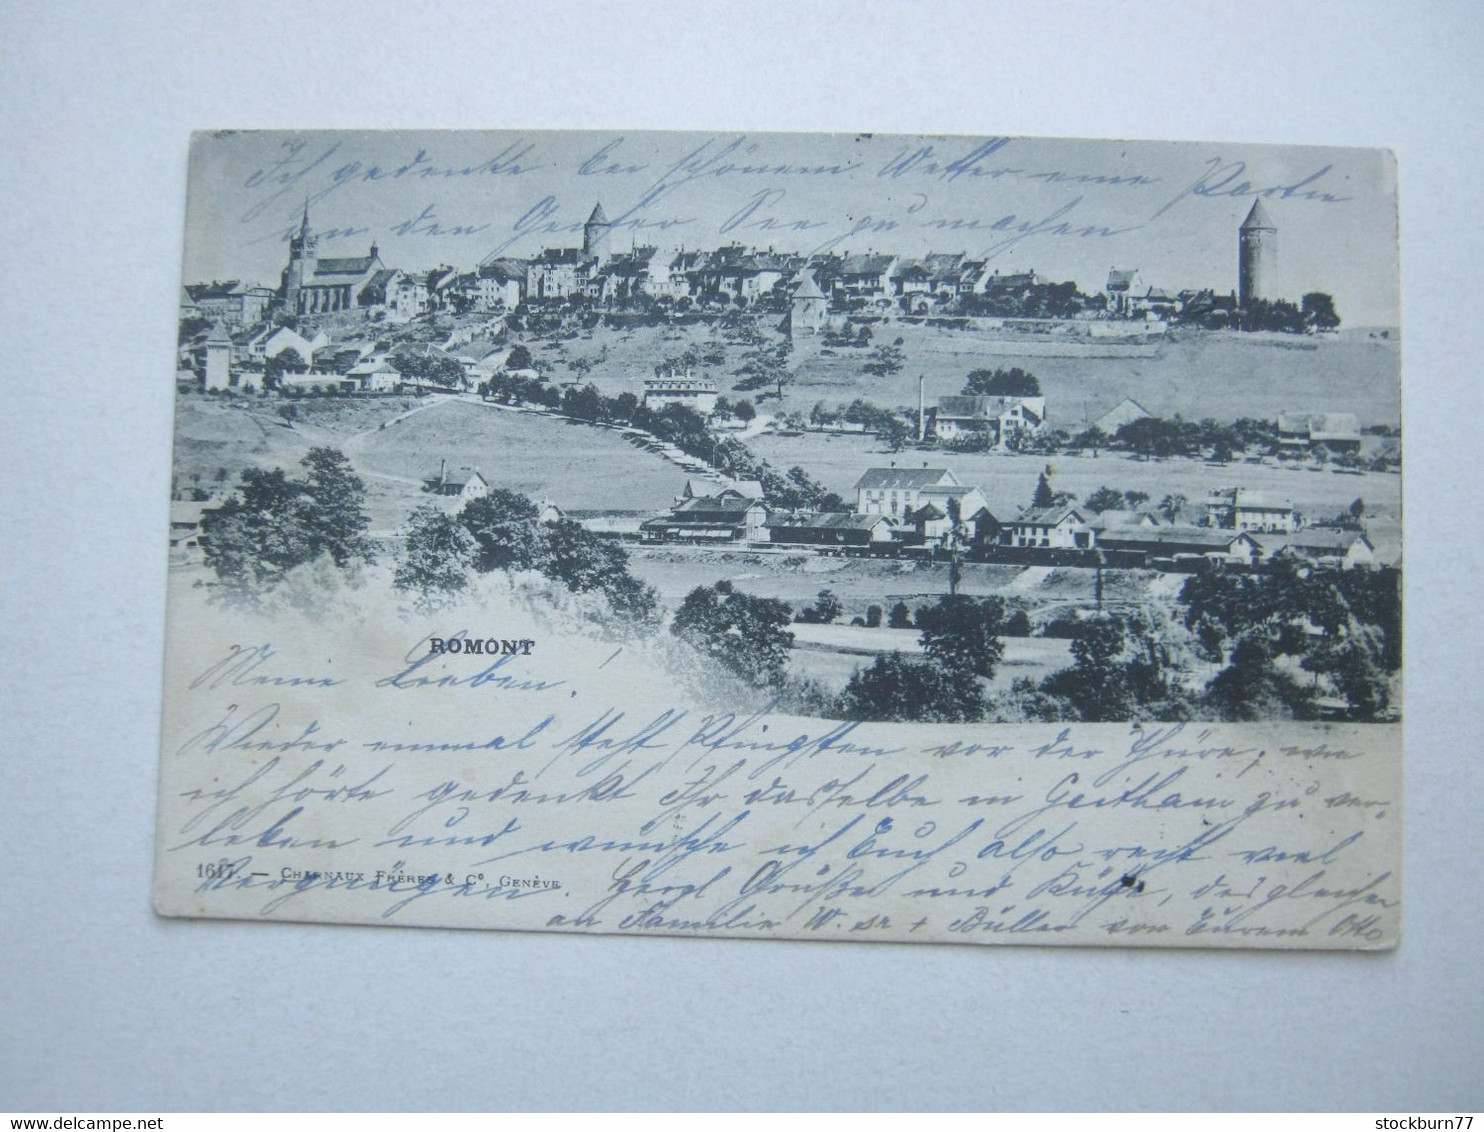 Ich gedenke bei schönem Wetter eine Partie
an den Genfer See zu machen
ROMONT
Meine Lieben!
Wieder einmal steht Pfingsten vor der Thüre, wie
ich hörte gedenkt Ihr dasselbe in Geithain zu ver-
leben und wünsche ich Euch also recht viel
1617. — CHARNAUX FRÈRES & Cº, GENÈVE
Vergnügen. Herzl Grüße und Küsse, desgleichen
an Familie W. sr + Büller von Eurem Otto
stockburn77